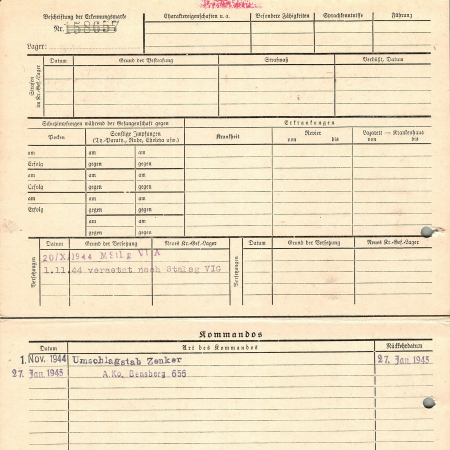 Beschriftung der Erkennungsmarke
Nr. 158657
Lager:
Charaktereigenschaften u. a.
Besondere Fähigkeiten
Sprachkenntnisse
Führung
Strafen im Kr.-Gef.-Lager
Datum
Grund der Bestrafung
Strafmaß
Verbüßt, Datum
Schutzimpfungen während der Gefangenschaft gegen
Erkrankungen
Pocken
Sonstige Impfungen
(Ty.-Paraty., Ruhr, Cholera usw.)
Krankheit
Revier
von bis
Lazarett — Krankenhaus
von bis
am am am
Erfolg gegen gegen
am am am
Erfolg gegen gegen
am am am
Erfolg gegen gegen
am am
gegen gegen
Versetzungen
Datum
Grund der Versetzung
Neues Kr.-Gef.-Lager
Versetzungen
Datum
Grund der Versetzung
Neues Kr.-Gef.-Lager
20/X.1944
1.11.44 versetzt nach Stalag VIG
Kommandos
Datum
Art des Kommandos
Rückkehrdatum
1. Nov. 1944 Umschlagstab Zenker 27. Jan. 1945
27. Jan. 1945 A.Ko. Bensberg 656